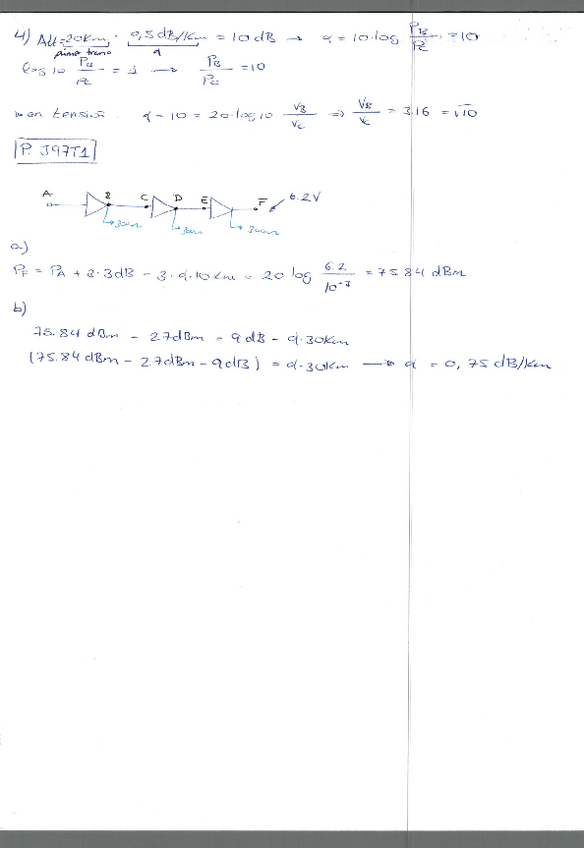 4) Att = 20km · 0,5 dB/km = 10 dB → α = 10·log PB/PC = 10
primer tramo α
log 10 PB/PC = 1 → PB/PC = 10
en tensión α = 10 = 20·log10 VB/VC ⇒ VB/VC = 3.16 = √10
P. J97T1
A B C D E F 6.2V
300m 300m 300m
a)
PF = PA + 3·3dB - 3·α·10km = 20 log 6.2/10⁻³ = 75.84 dBm
b)
75.84 dBm - 27dBm = 9dB - α·30km
(75.84 dBm - 27dBm - 9dB) = α·30km → α = 0,75 dB/km